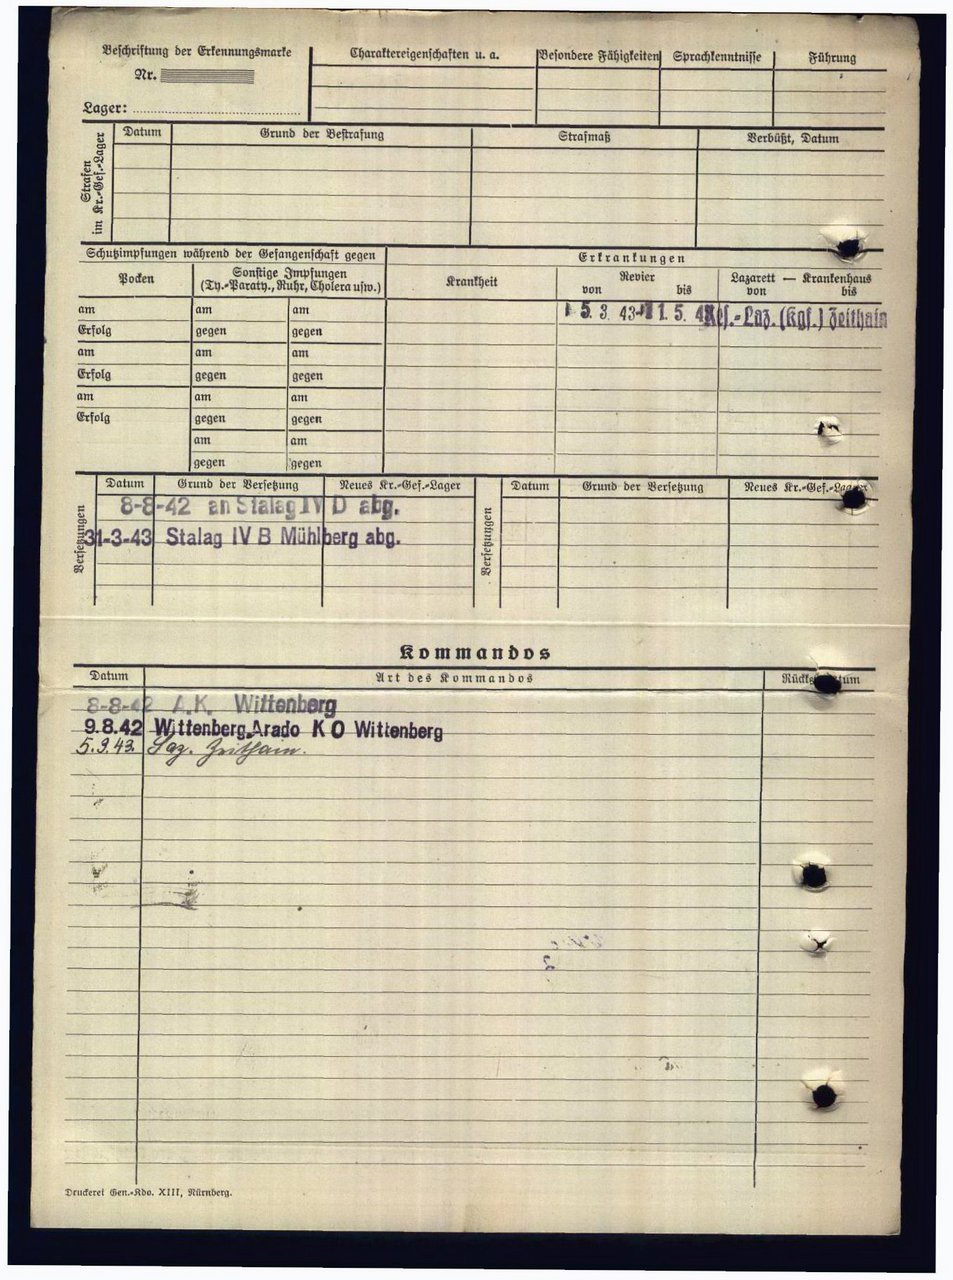 Beschriftung der Erkennungsmarke
Nr.
Lager:
Charaktereigenschaften u. a.
Besondere Fähigkeiten
Sprachkenntnisse
Führung
Strafen im Kr.-Gef.-Lager
Datum
Grund der Bestrafung
Strafmaß
Verbüßt, Datum
Schutzimpfungen während der Gefangenschaft gegen
Erkrankungen
Pocken
Sonstige Impfungen
(Ty.-Paraty., Ruhr, Cholera usw.)
Krankheit
Revier
von bis
Lazarett — Krankenhaus
von bis
am am am
5. 3. 43 1. 5. 43 Res.-Laz. (Kgf.) Zeithain
Erfolg gegen gegen
am am am
Erfolg gegen gegen
am am am
Erfolg gegen gegen
am am
gegen gegen
Versetzungen
Datum Grund der Versetzung Neues Kr.-Gef.-Lager
8-8-42 an Stalag IV D abg.
31-3-43 Stalag IV B Mühlberg abg.
Versetzungen
Datum Grund der Versetzung Neues Kr.-Gef.-Lager
Kommandos
Datum Art des Kommandos
8-8-42 A.K. Wittenberg
9.8.42 Wittenberg.Arado K O Wittenberg
5.9.43. Laz. Zeithain.
Druckerei Gen.-Kdo. XIII, Nürnberg.